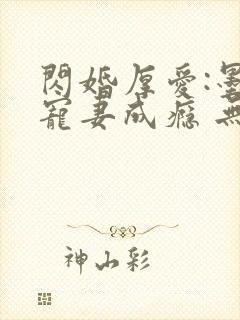 閃婚厚愛:
寵妻成癮 無
神山彩